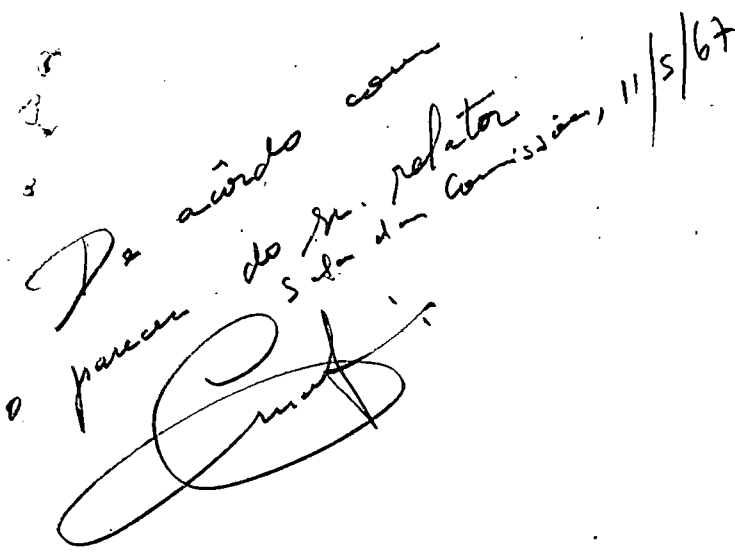 De acôrdo com
o parecer do sr. relator
Sala das Comissões, 11/5/67